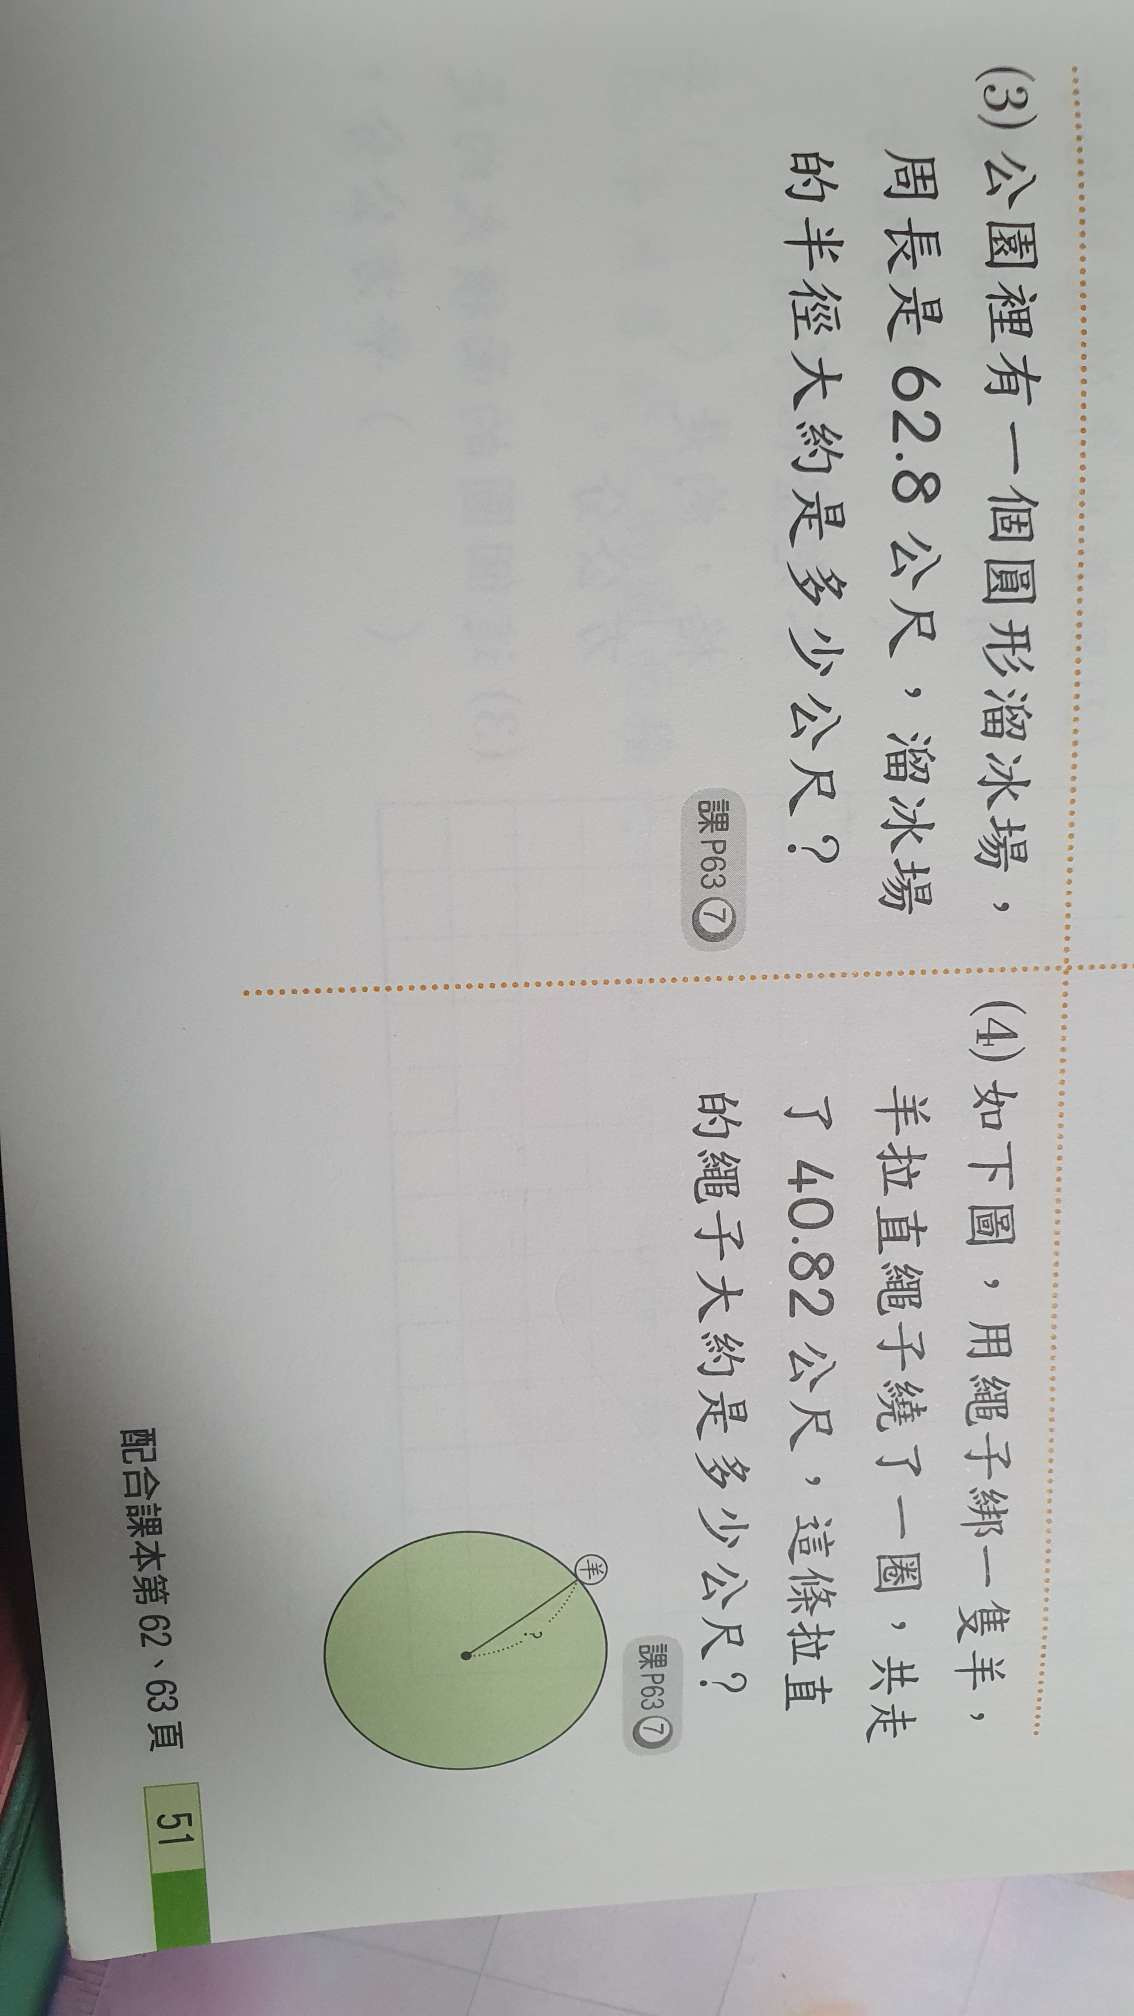 (3) 公園裡有一個圓形溜冰場，
周長是 62.8 公尺，溜冰場
的半徑大約是多少公尺？
課P63⑦
(4) 如下圖，用繩子綁一隻羊，
羊拉直繩子繞了一圈，共走
了 40.82 公尺，這條拉直
的繩子大約是多少公尺？
課P63⑦
羊
?
配合課本第 62、63 頁
51